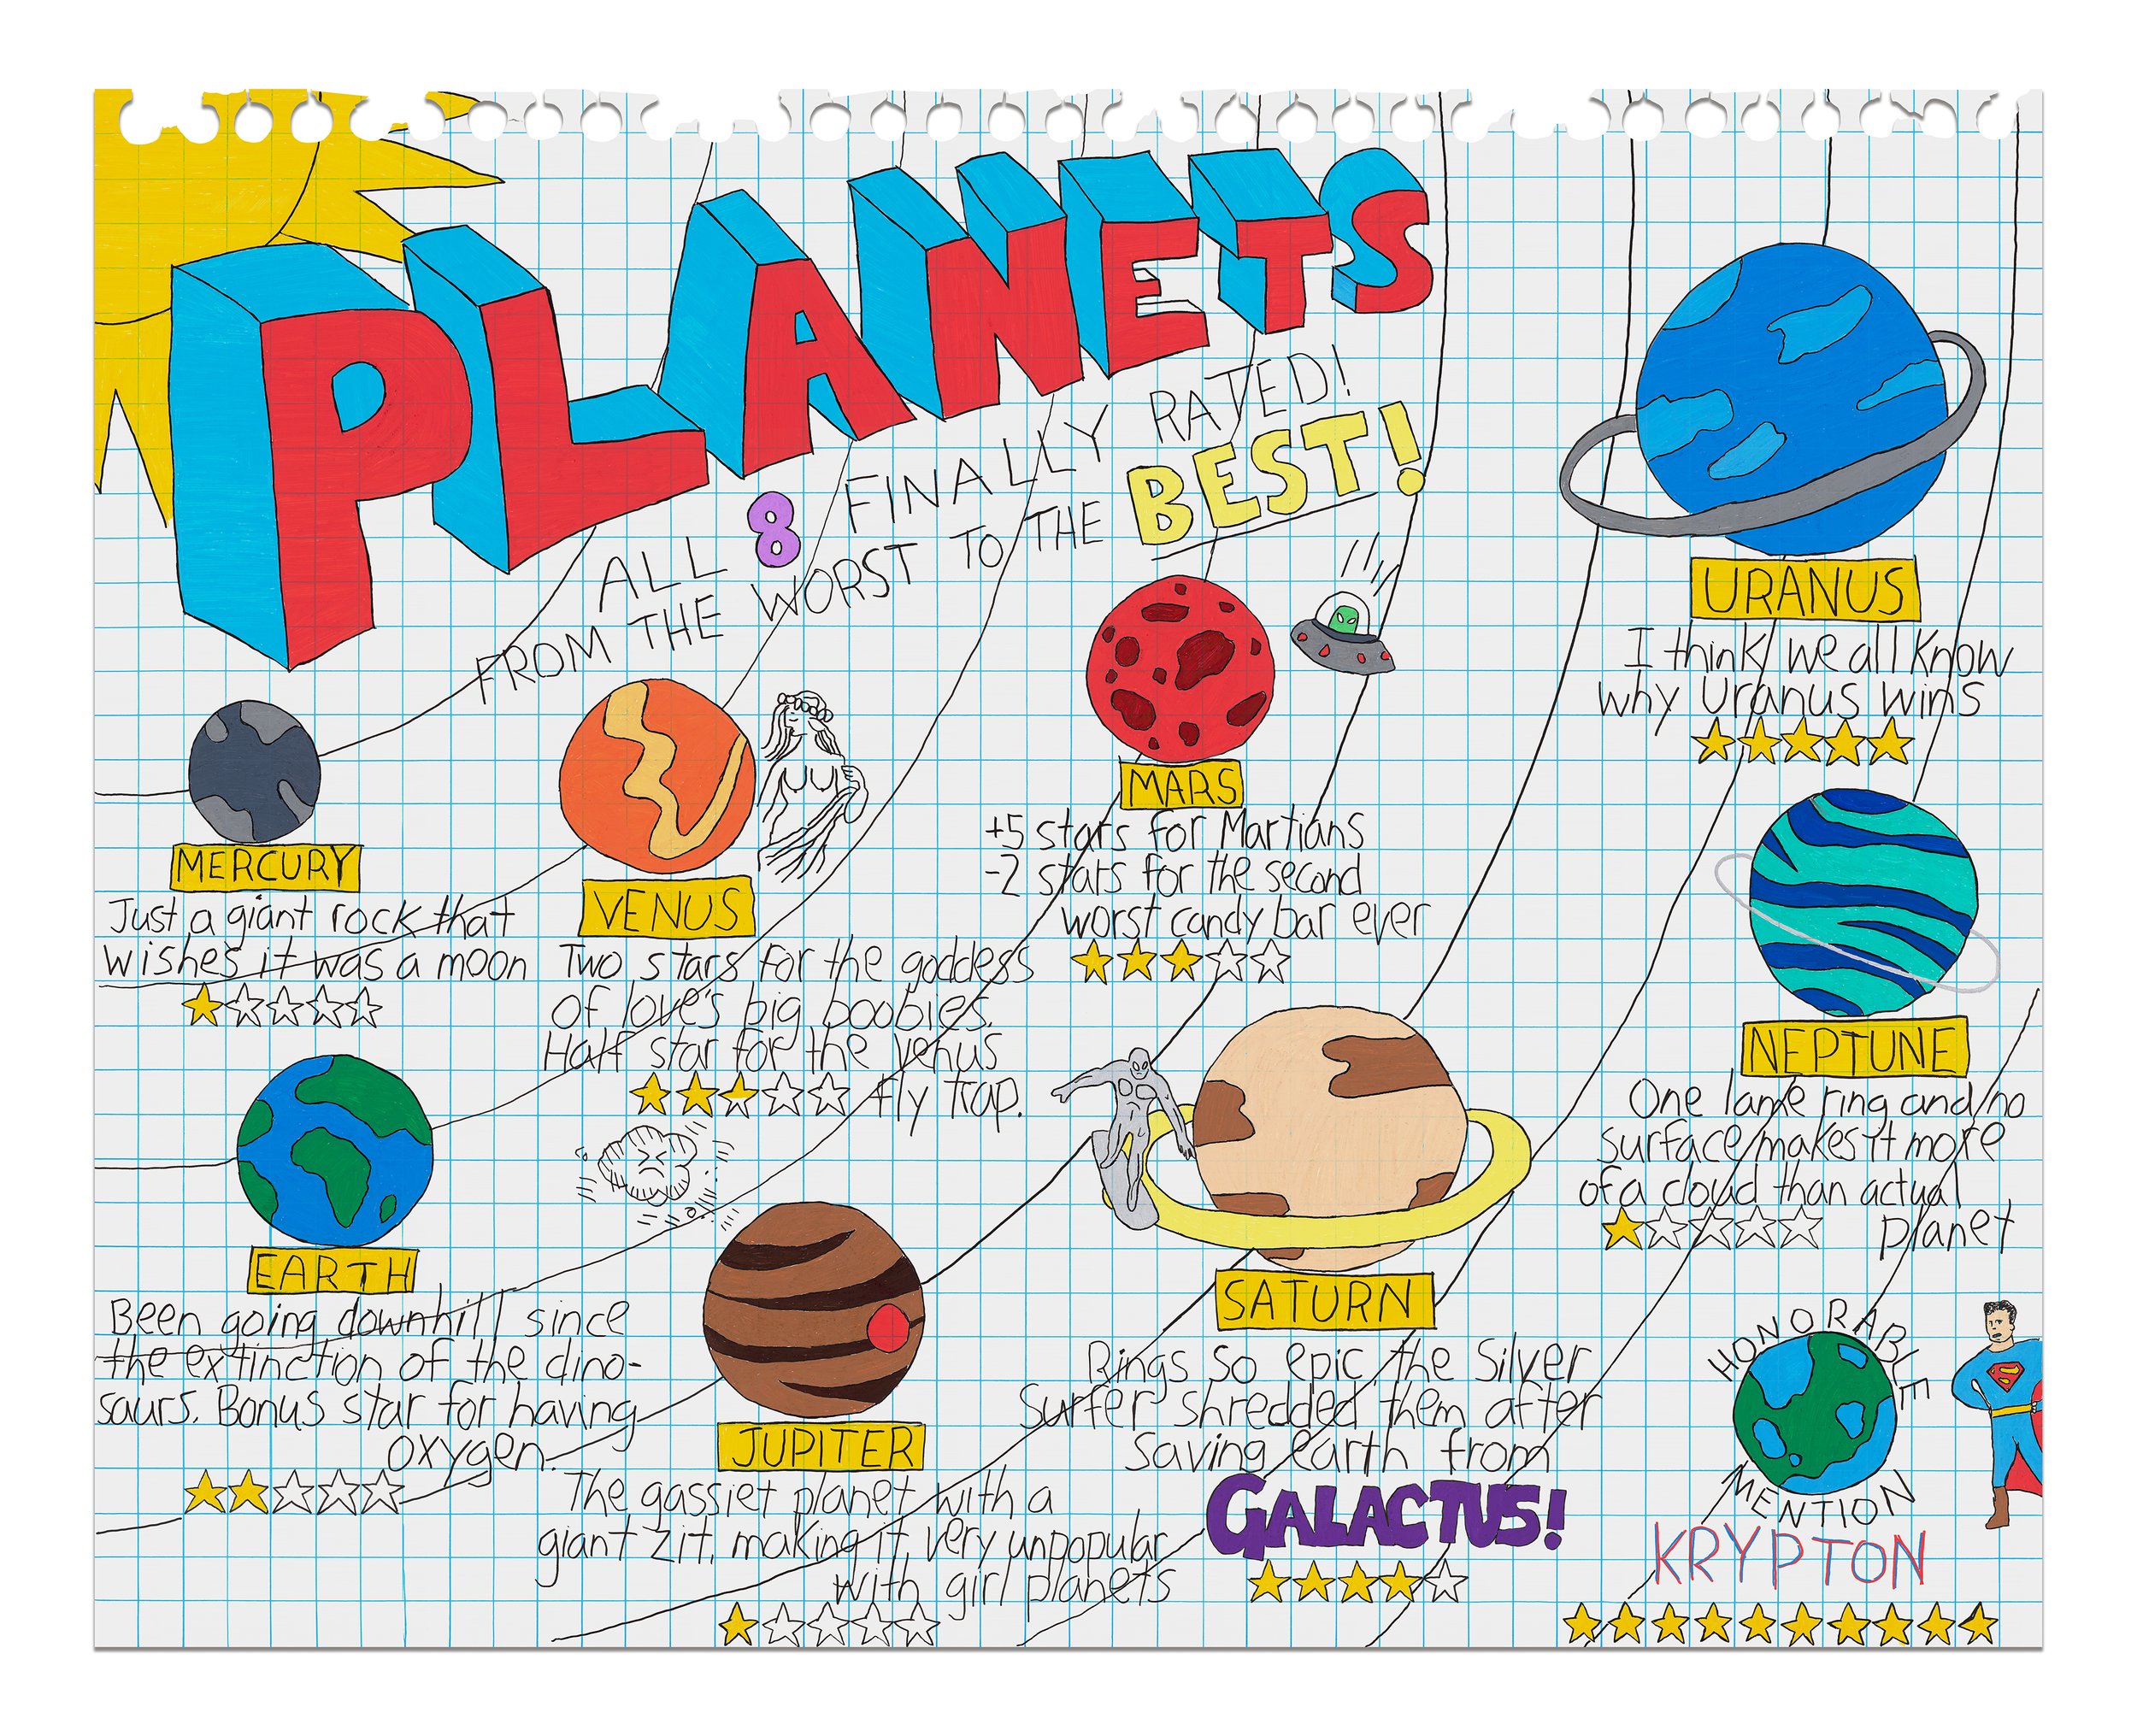 PLANETS
ALL 8 FINALLY RATED!
FROM THE WORST TO THE BEST!
MERCURY
Just a giant rock that
wishes it was a moon
VENUS
Two stars for the goddess
of love's big boobies.
Half star for the venus
fly trap.
EARTH
Been going downhill since
the extinction of the dino-
saurs. Bonus star for having
oxygen.
MARS
+5 stars for Martians
-2 stars for the second
worst candy bar ever
JUPITER
The gassiet planet with a
giant zit, making it very unpopular
with girl planets
SATURN
Rings so epic, the Silver
Surfer shredded them after
saving earth from
GALACTUS!
URANUS
I think we all know
why Uranus wins
NEPTUNE
One lame ring and no
surface makes it more
of a cloud than actual
planet
HONORABLE
MENTION
KRYPTON
S